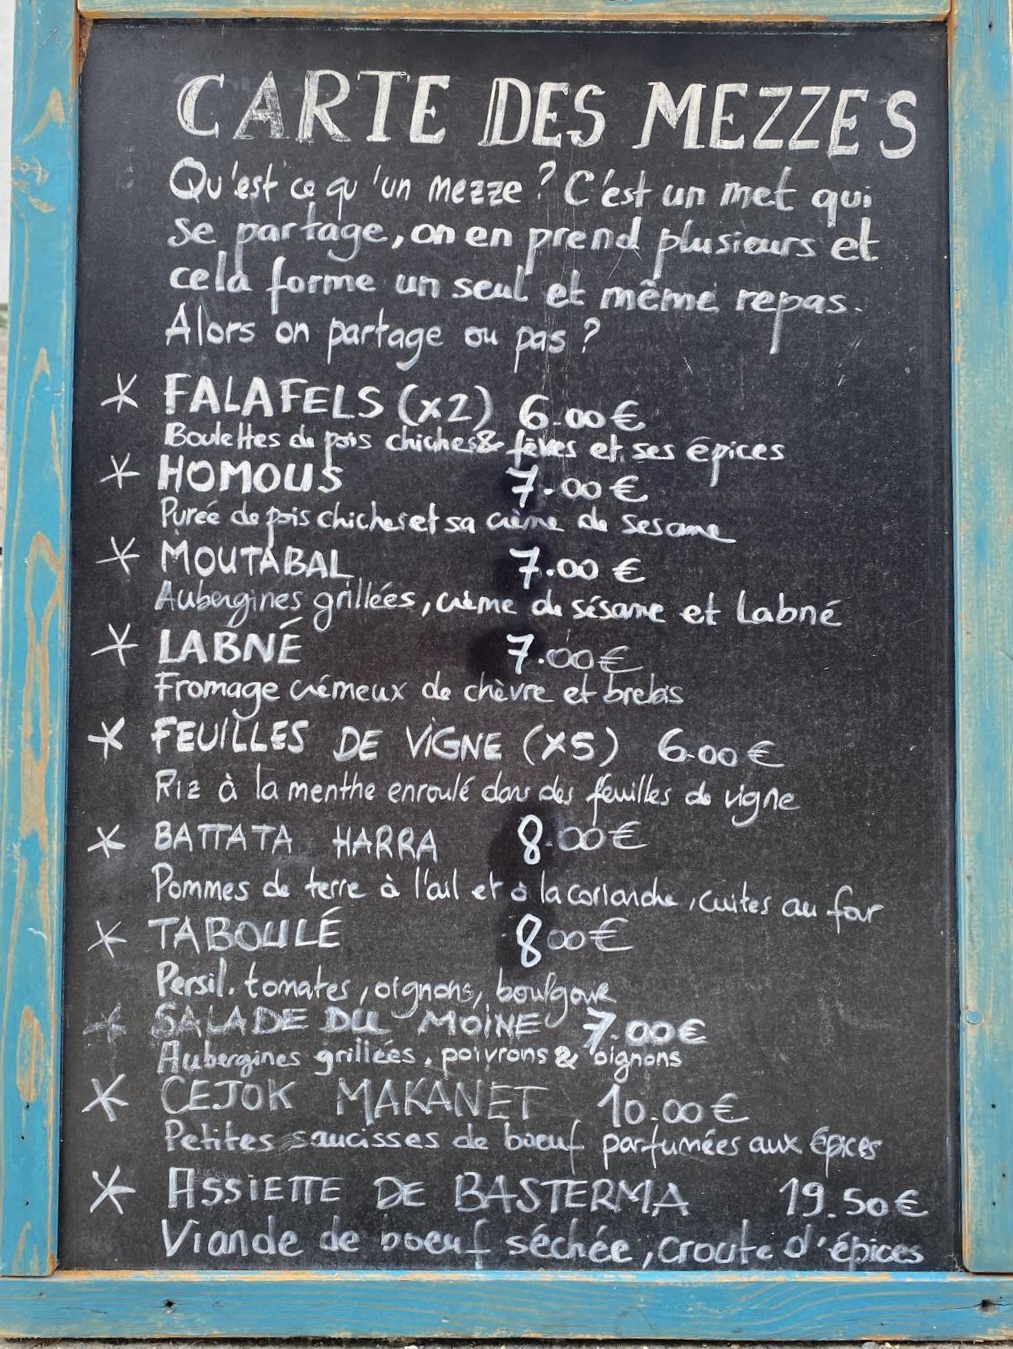 CARTE DES MEZZES
Qu'est ce qu'un mezze ? C'est un met qui
se partage, on en prend plusieurs et
cela forme un seul et même repas.
Alors on partage ou pas ?
* FALAFELS (x2) 6.00€
Boulettes de pois chiches & fèves et ses épices
* HOMOUS 7.00€
Purée de pois chiches et sa crème de sesame
* MOUTABAL 7.00€
Aubergines grillées, crème de sésame et Labné
* LABNÉ 7.00€
Fromage crémeux de chèvre et brebis
* FEUILLES DE VIGNE (x5) 6.00€
Riz à la menthe enroulé dans des feuilles de vigne
* BATTATA HARRA 8.00€
Pommes de terre à l'ail et à la coriandre, cuites au four
* TABOULÉ 8.00€
Persil, tomates, oignons, boulgour
* SALADE DU MOINE 7.00€
Aubergines grillées, poivrons & oignons
* CEJOK MAKANET 10.00€
Petites saucisses de bœuf parfumées aux épices
* ASSIETTE DE BASTERMA 19.50€
Viande de boeuf séchée, croute d'épices